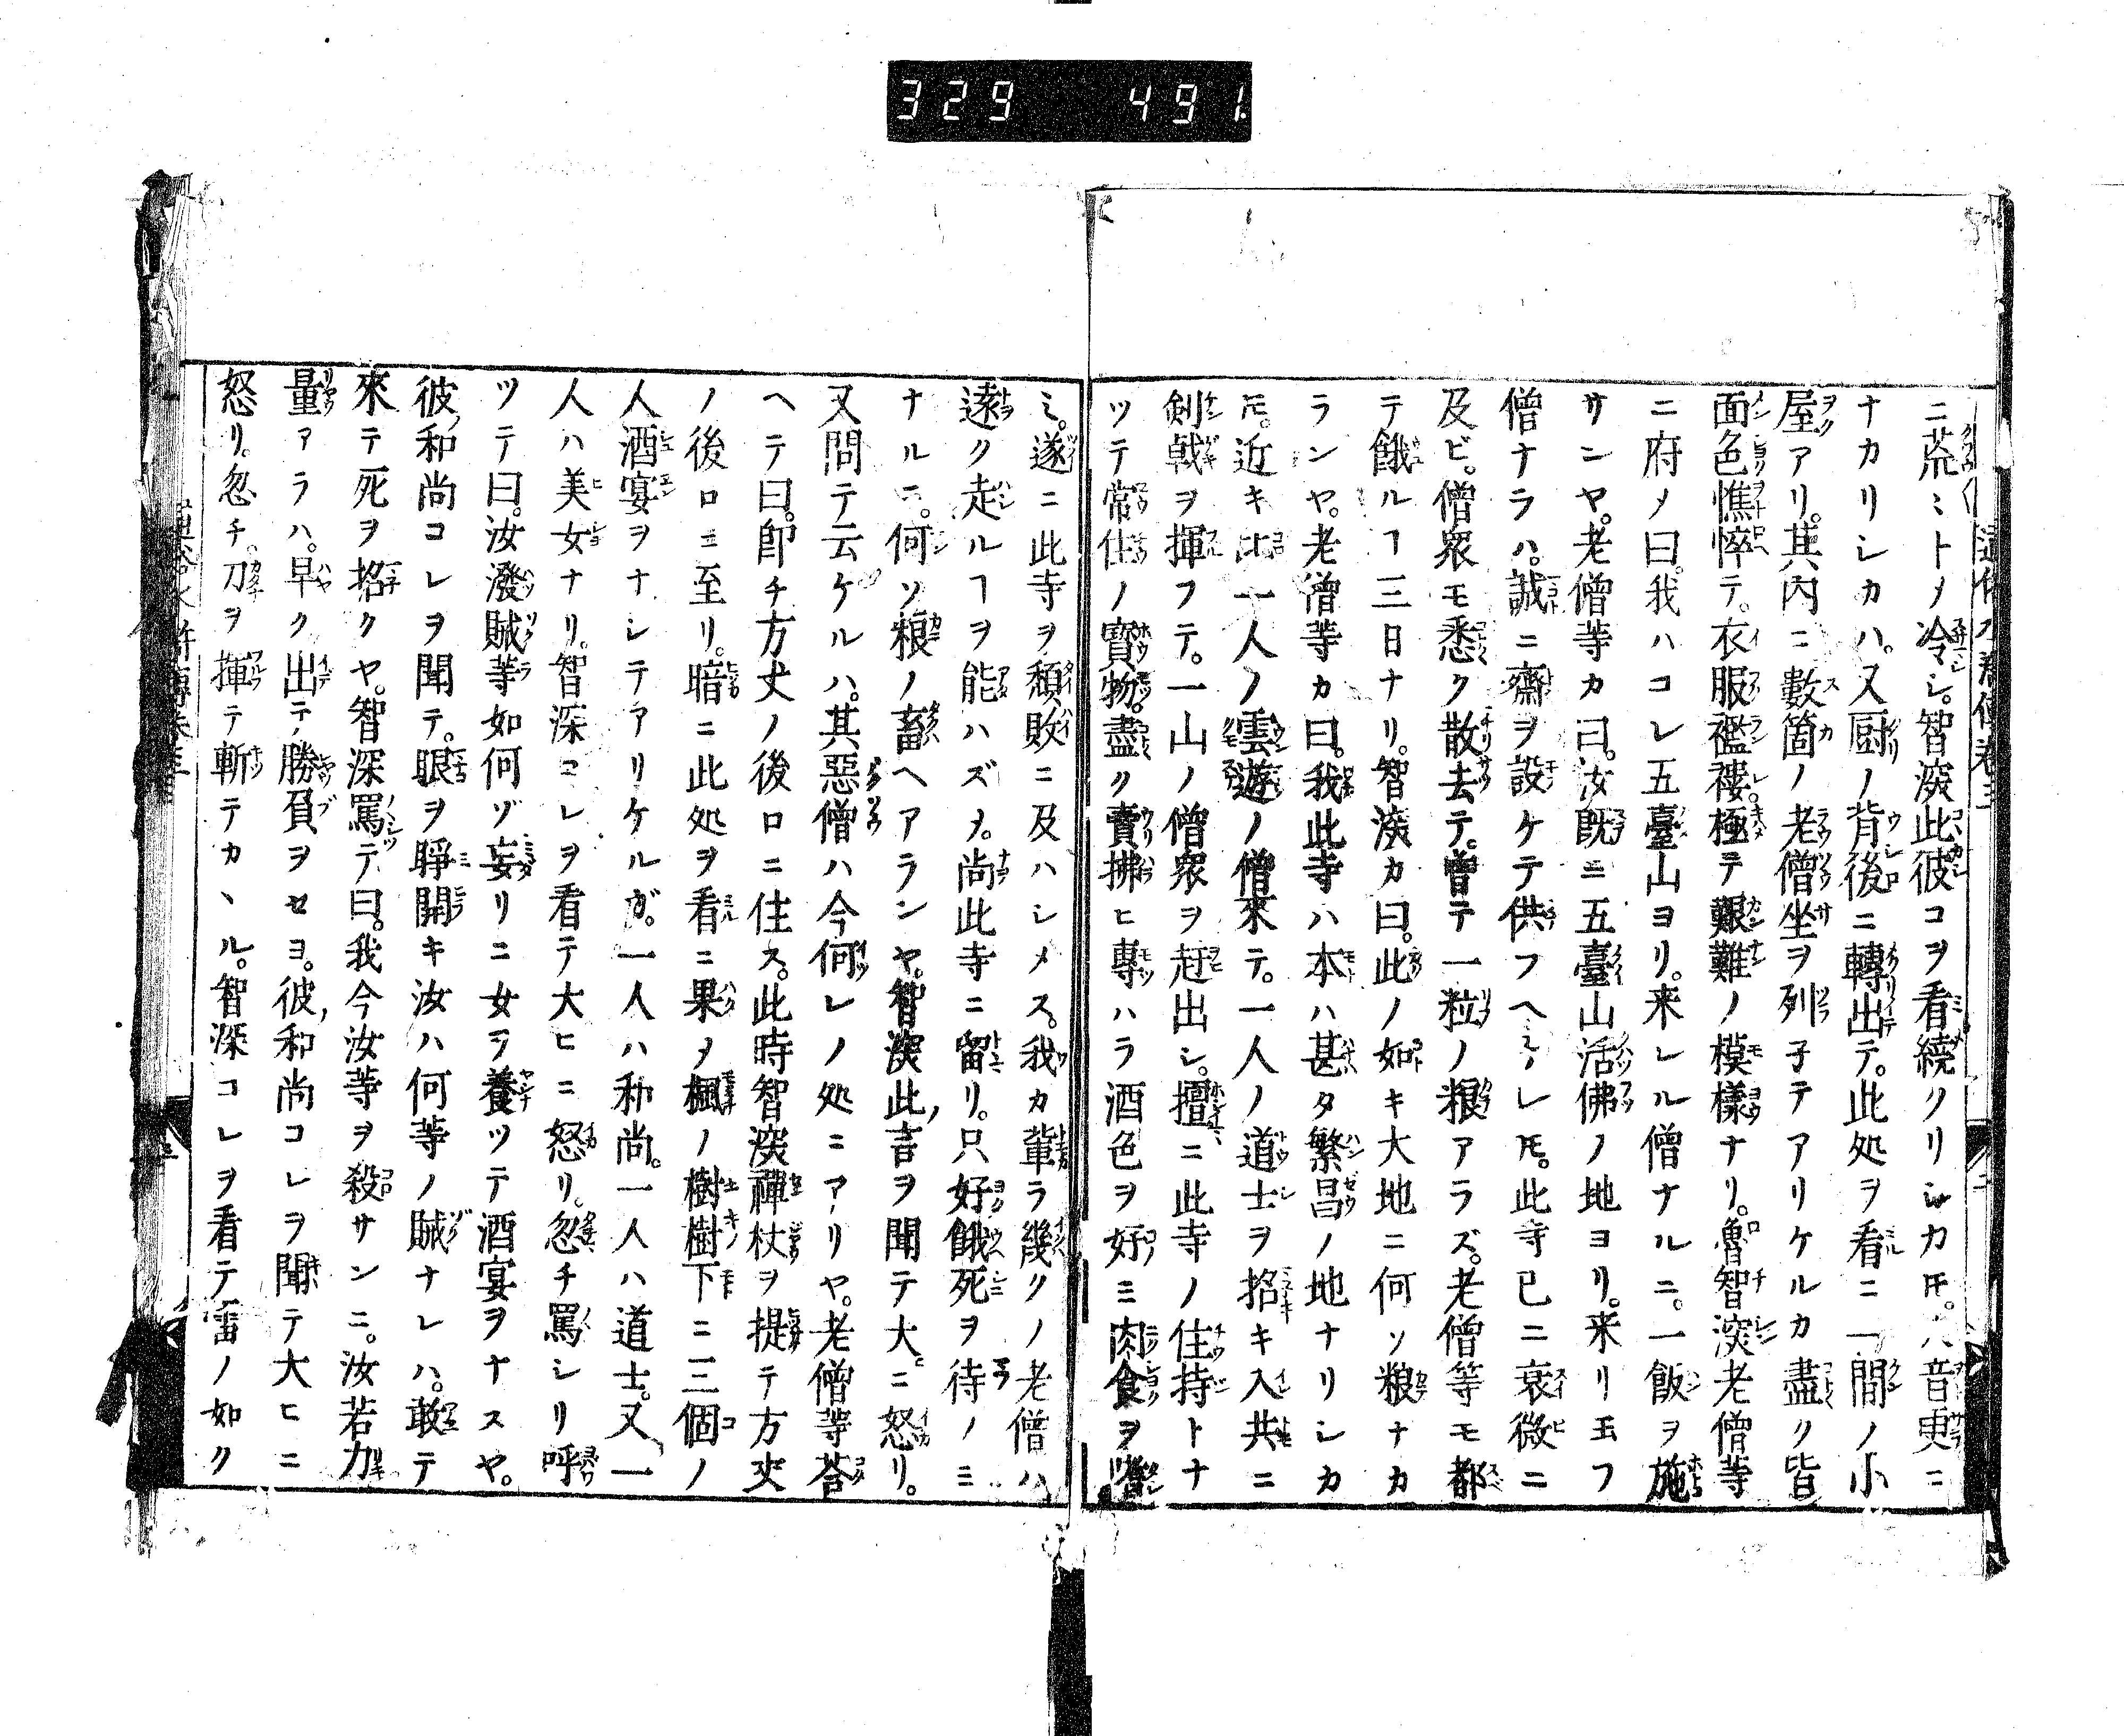 329 491
通俗水滸傳卷三
ニ荒ミトメ冷シ。智深此彼コヲ看繞クリシカ𪜈。人音更ニ
ナカリシカハ。又厨ノ背後ニ轉出テ。此処ヲ看ニ一間ノ小
屋アリ。其内ニ數箇ノ老僧坐ヲ列子テアリケルカ盡ク皆
面色憔悴テ。衣服襤褸。極テ艱難ノ模樣ナリ。魯智深老僧等
ニ府メ曰。我ハコレ五臺山ヨリ。来レル僧ナルニ。一飯ヲ施
サンヤ。老僧等カ曰。汝既ニ五臺山活佛ノ地ヨリ。来リ玉フ
僧ナラハ。誠ニ齋ヲ設ケテ供フヘケレ𪜈。此寺已ニ衰微ニ
及ビ。僧衆モ悉ク散去テ。曽テ一粒ノ粮アラズ。老僧等モ都
テ餓ルヿ三日ナリ。智深カ曰。此ノ如キ大地ニ何ソ粮ナカ
ランヤ。老僧等カ曰。我此寺ハ本ハ甚タ繁昌ノ地ナリシカ
𪜈。近キ比一人ノ雲遊ノ僧來テ。一人ノ道士ヲ招キ入共ニ
剣戟ヲ揮フテ。一山ノ僧衆ヲ赶出シ。擅ニ此寺ノ住持トナ
ツテ常住ノ寳物。盡ク賣拂ヒ專ハラ酒色ヲ好ミ肉食ヲ嗜
ミ。遂ニ此寺ヲ頽敗ニ及ハシメス。我カ輩ラ幾クノ老僧ハ
遠ク走ルヿヲ能ハズメ。尚此寺ニ留リ。只好餓死ヲ待ノミ
ナルニ。何ソ粮ノ畜ヘアランヤ。智深此言ヲ聞テ大ニ怒リ。
又問テ云ケルハ。其惡僧ハ今何レノ処ニアリヤ。老僧等荅
ヘテ曰。卽チ方丈ノ後ロニ住ス。此時智深禪杖ヲ提テ方丈
ノ後ロニ至リ。暗ニ此処ヲ看ニ果メ楓ノ樹樹下ニ三個ノ
人酒宴ヲナシテアリケルガ。一人ハ和尚。一人ハ道士。又一
人ハ美女ナリ。智深コレヲ看テ大ヒニ怒リ。忽チ罵シリ呼
ツテ曰。汝潑賊等如何ゾ妄リニ女ヲ養ツテ酒宴ヲナスヤ。
彼和尚コレヲ聞テ。眼ヲ睜開キ汝ハ何等ノ賊ナレハ。敢テ
來テ死ヲ招クヤ。智深罵テ曰。我今汝等ヲ殺サンニ。汝若力
量アラハ。早ク出テ勝負ヲセヨ。彼和尚コレヲ聞テ大ヒニ
怒リ。忽チ。刀ヲ揮テ斬テカヽル。智深コレヲ看テ雷ノ如ク
通俗水滸傳卷三